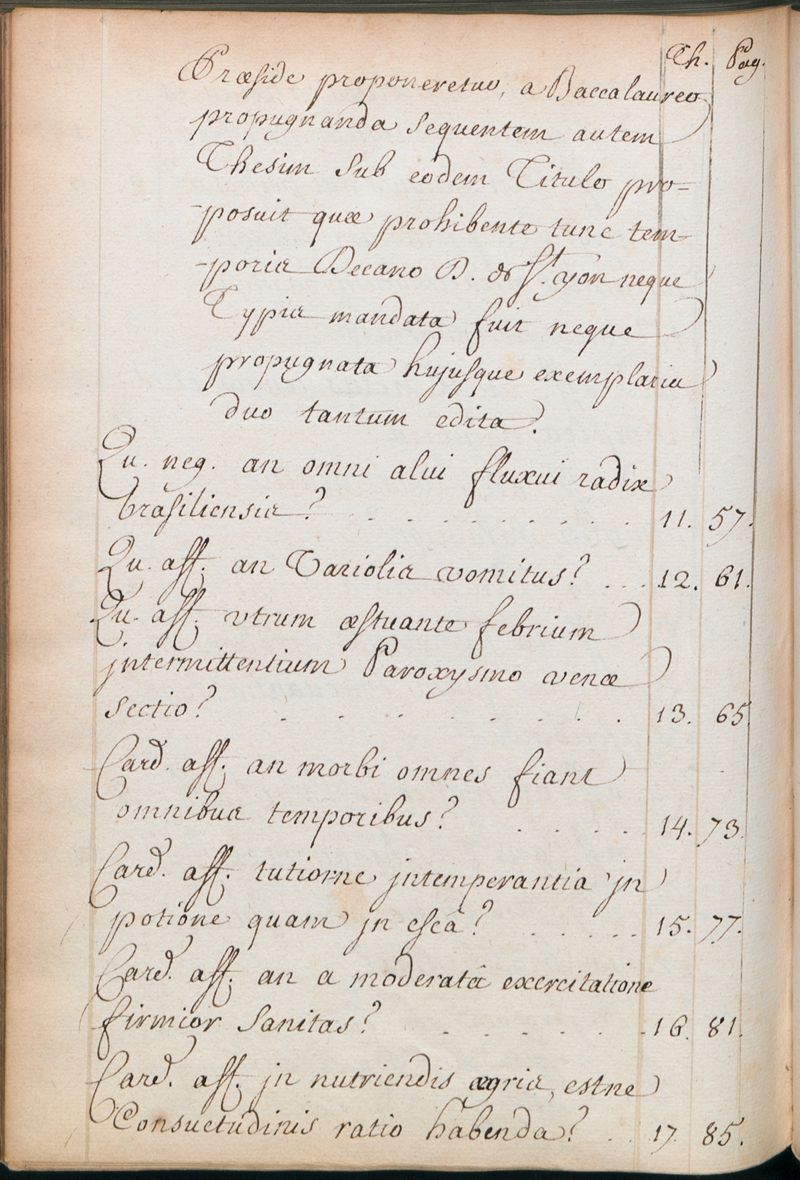 Th. Pag.
Præside proponeretur, a Baccalaureo
propugnanda sequentem autem
Thesim sub eodem Titulo pro=
-posuit quæ prohibente tunc tem-
-poris Decano D. de St. yon neque
Typis mandata fuit neque
propugnata hujusque exemplaria
duo tantum edita.
Qu. neg. an omni alui fluxui radix
brasiliensis? . . . . . . . . 11. 57.
Qu. aff. an Variolis vomitus? . . . 12. 61.
Qu. aff. vtrum æstuante febrium
jntermittentium Paroxysmo venæ
sectio? . . . . . . . . . 13. 65
Card. aff. an morbi omnes fiant
omnibus temporibus? . . . . . 14. 73.
Card. aff. tutiorne jntemperantia jn
potione quam jn escâ? . . . . . 15. 77.
Card. aff. an a moderatâ exercitatione
firmior sanitas? . . . . . . 16. 81.
Card. aff. jn nutriendis ægris, estne
Consuetudinis ratio habenda? . . 17. 85.